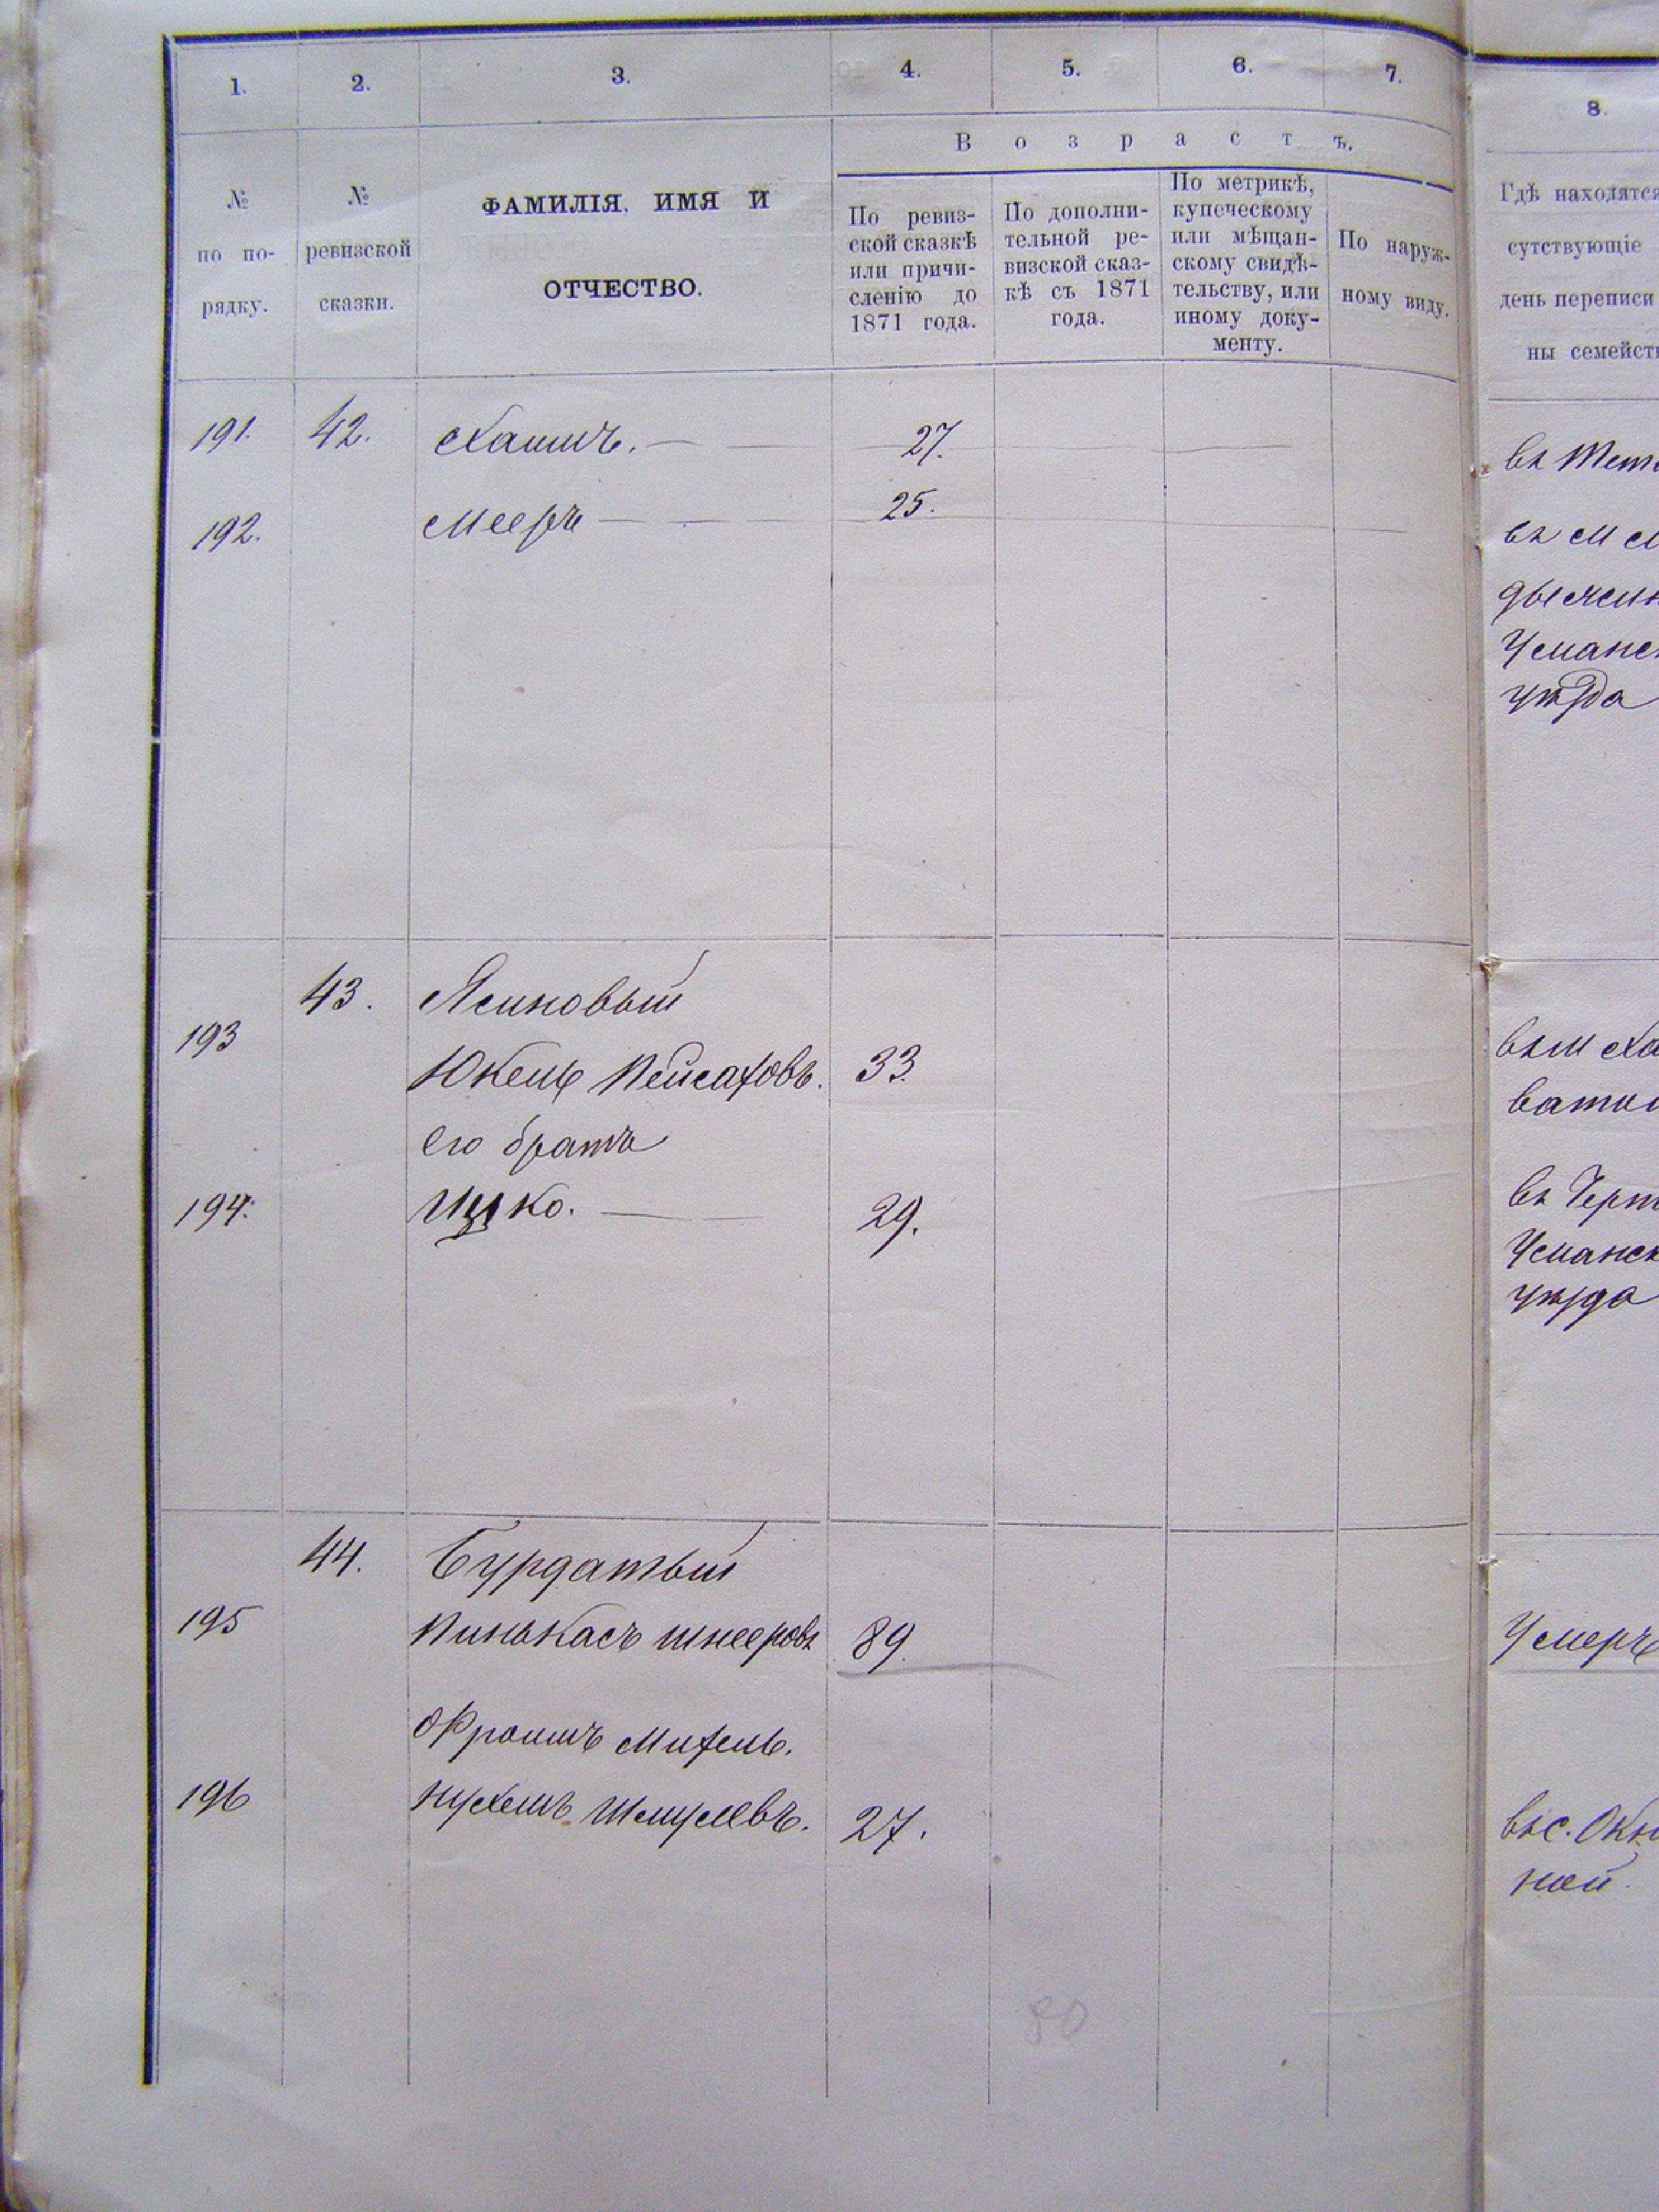 1. 2. 3. 4. 5. 6. 7. 8.
Возрастъ.
№ по по-
рядку.
№
ревизской
сказки.
ФАМИЛІЯ, ИМЯ И
ОТЧЕСТВО.
По ревиз-
ской сказкѣ
или причи-
сленію до
1871 года.
По дополни-
тельной ре-
визской сказ-
кѣ съ 1871
года.
По метрикѣ,
купеческому
или мѣщан-
скому свидѣ-
тельству, или
иному доку-
менту.
По наруж-
ному виду.
Гдѣ находятся
сутствующіе
день переписи
ны семейств
191. 42. Хаимъ. 27.
192. Мееръ 25.
въ м м
Уманск
уѣзда
43. Ясиновый
193 Юкель Пейсаховъ. 33.
его братъ
194. Ицко. 29.
въ Черт
Уманск
уѣзда
44. Бурдатый
195 Пинькасъ Шнееровъ 89. Умеръ
Фроимъ Михель.
196 Нухимъ Шмулевъ. 27. въ с. Окн
ной.
80